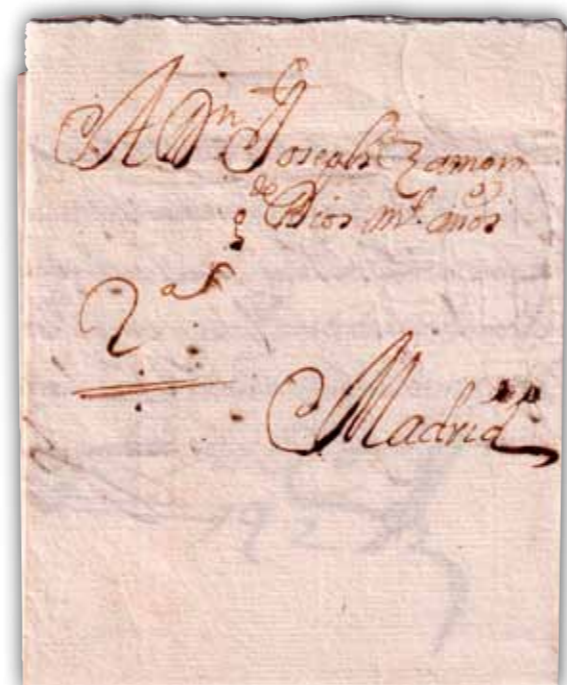 A Dn Joseph Zamora
g de Dios ms. as. años
2 as
Madrid